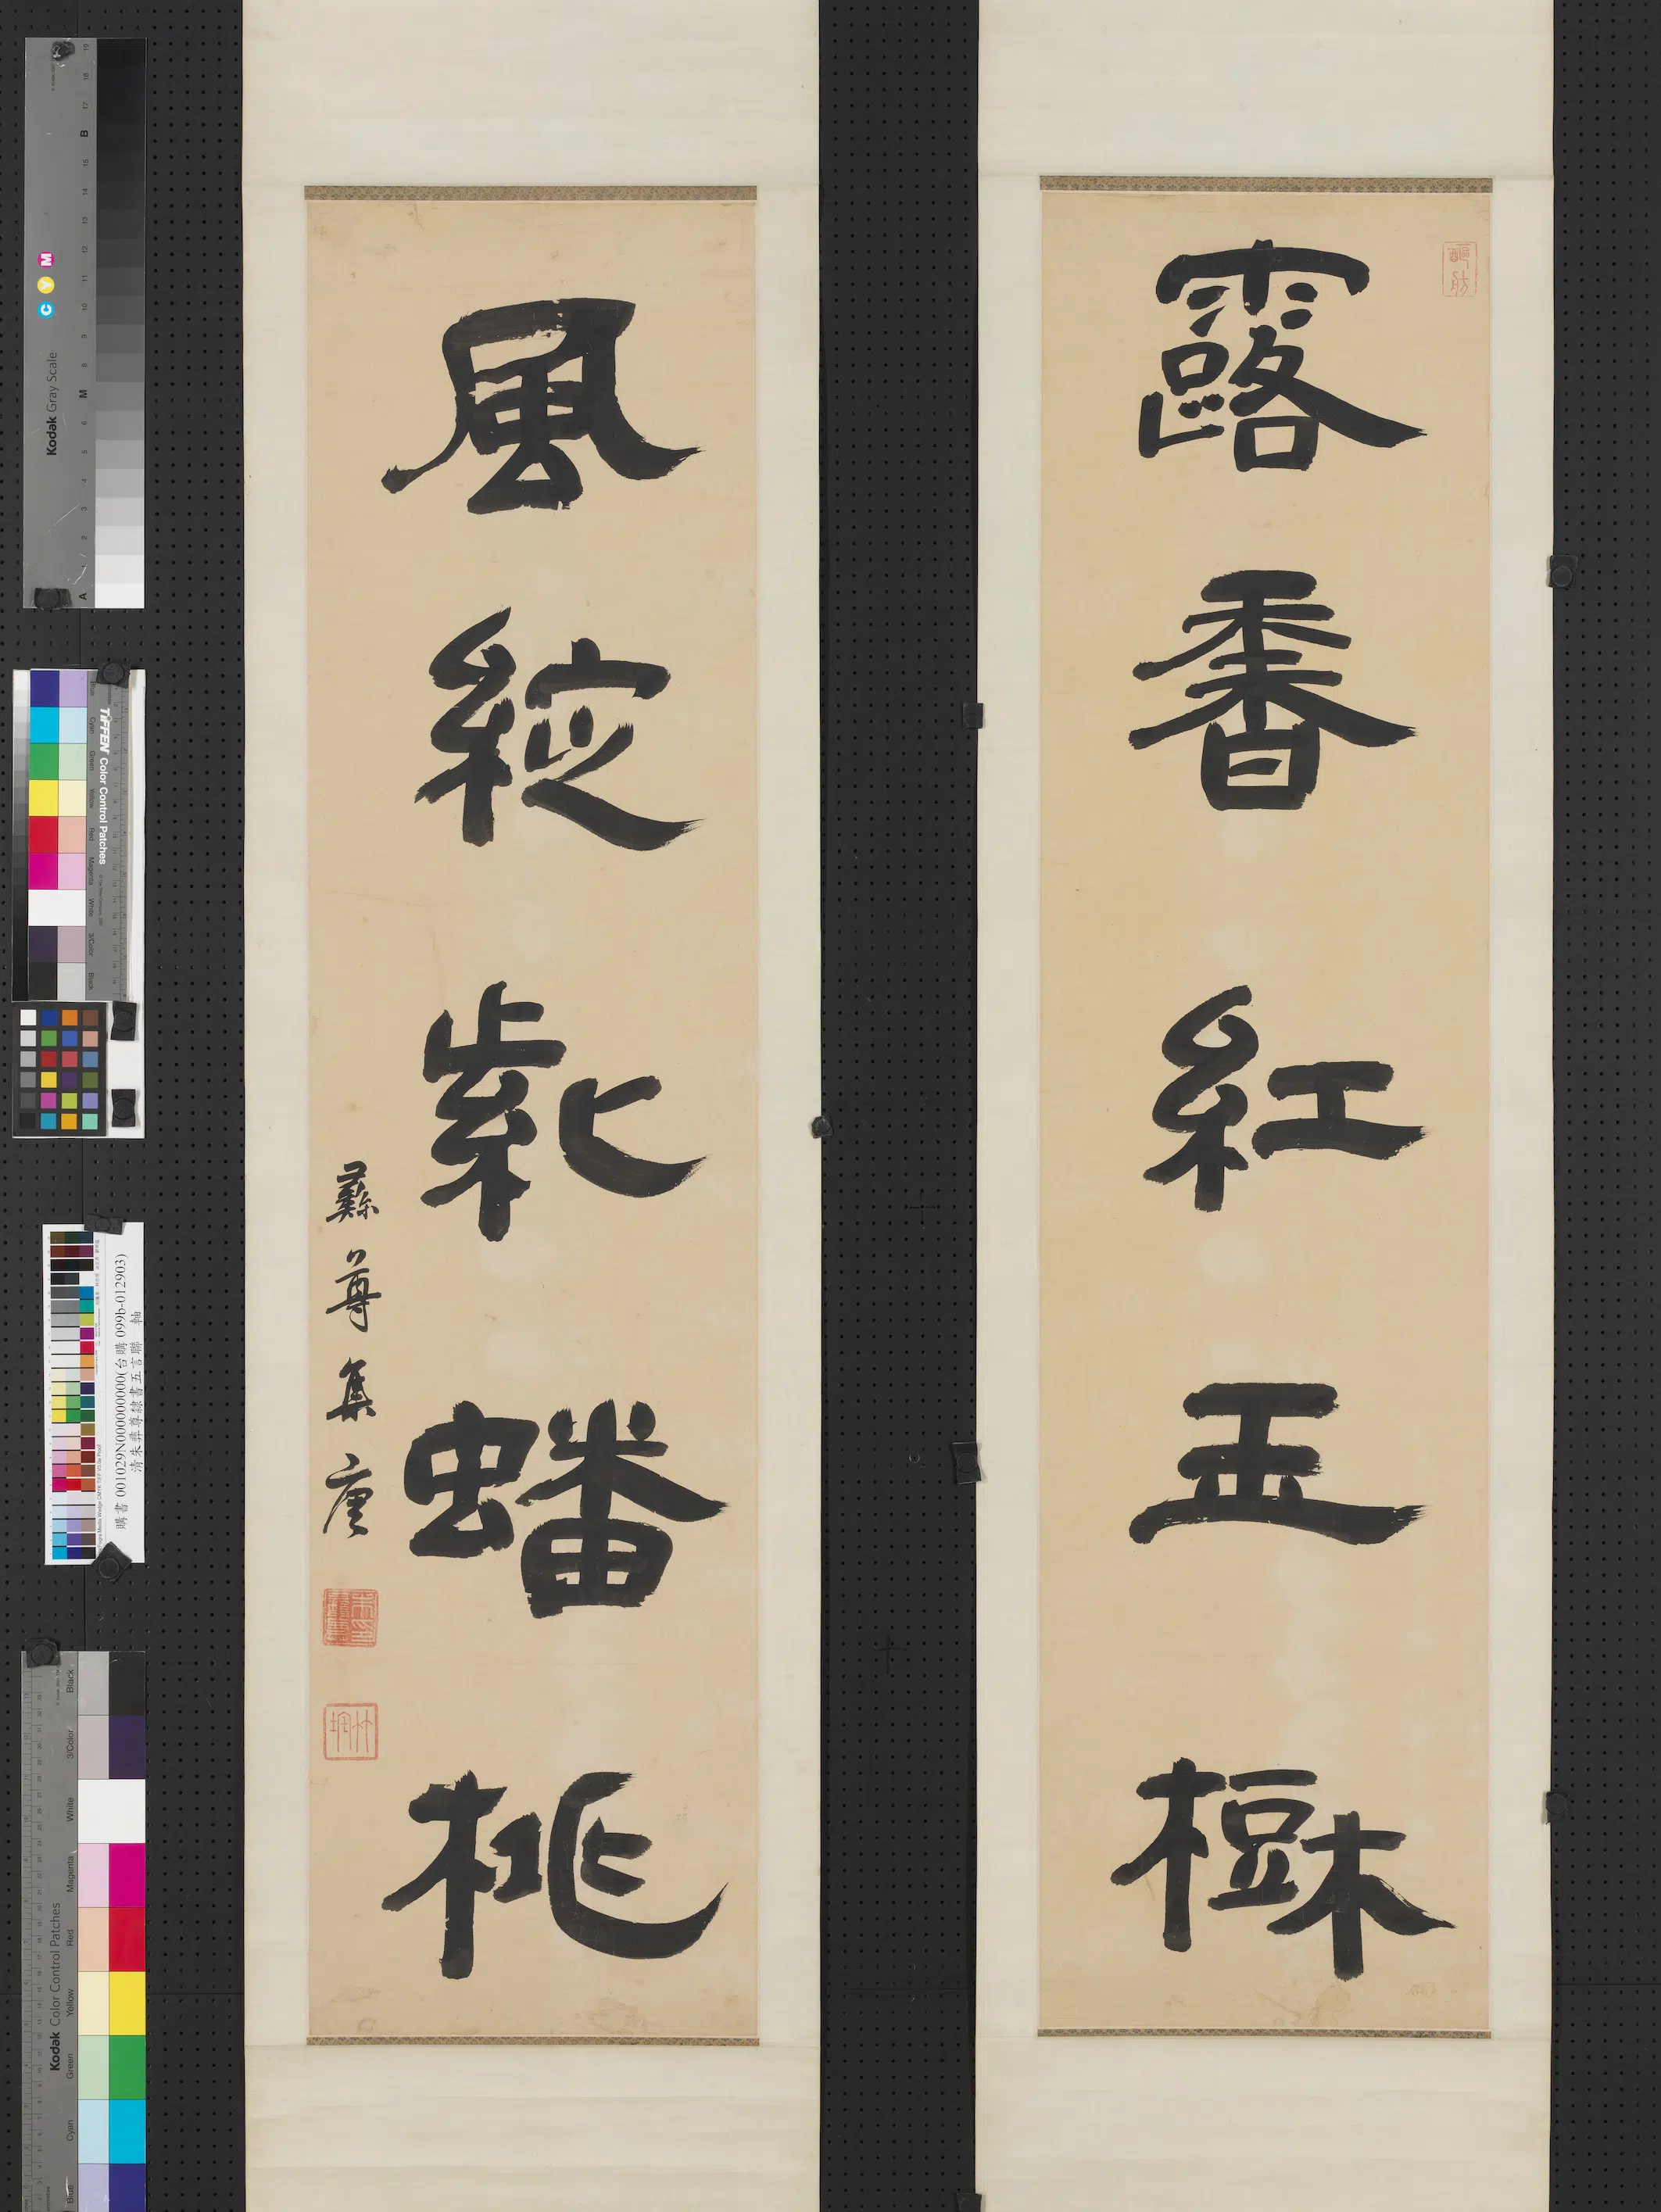 露香紅玉樹
風綻紫蟠桃
彝尊集唐
竹垞
Kodak Gray Scale
C Y M
TIFFEN Color Control Patches
Blue Cyan Green Yellow Red Magenta White 3/Color Black
購書 001029N000000000(台購 099b-012903)
清朱彝尊隸書五言聯 軸
Kodak Color Control Patches
Blue Cyan Green Yellow Red Magenta White 3/Color Black